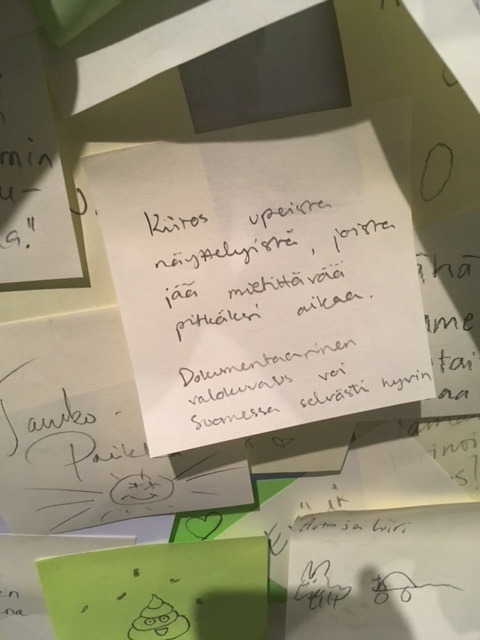 min
u-
a."
Kiitos upeista
näyttelyistä, joista
jää mietittävää
pitkäksi aikaa.
Dokumentaarinen
valokuvaus voi
Suomessa selvästi hyvin
ähä
ame
tai
aa
Taukopaik